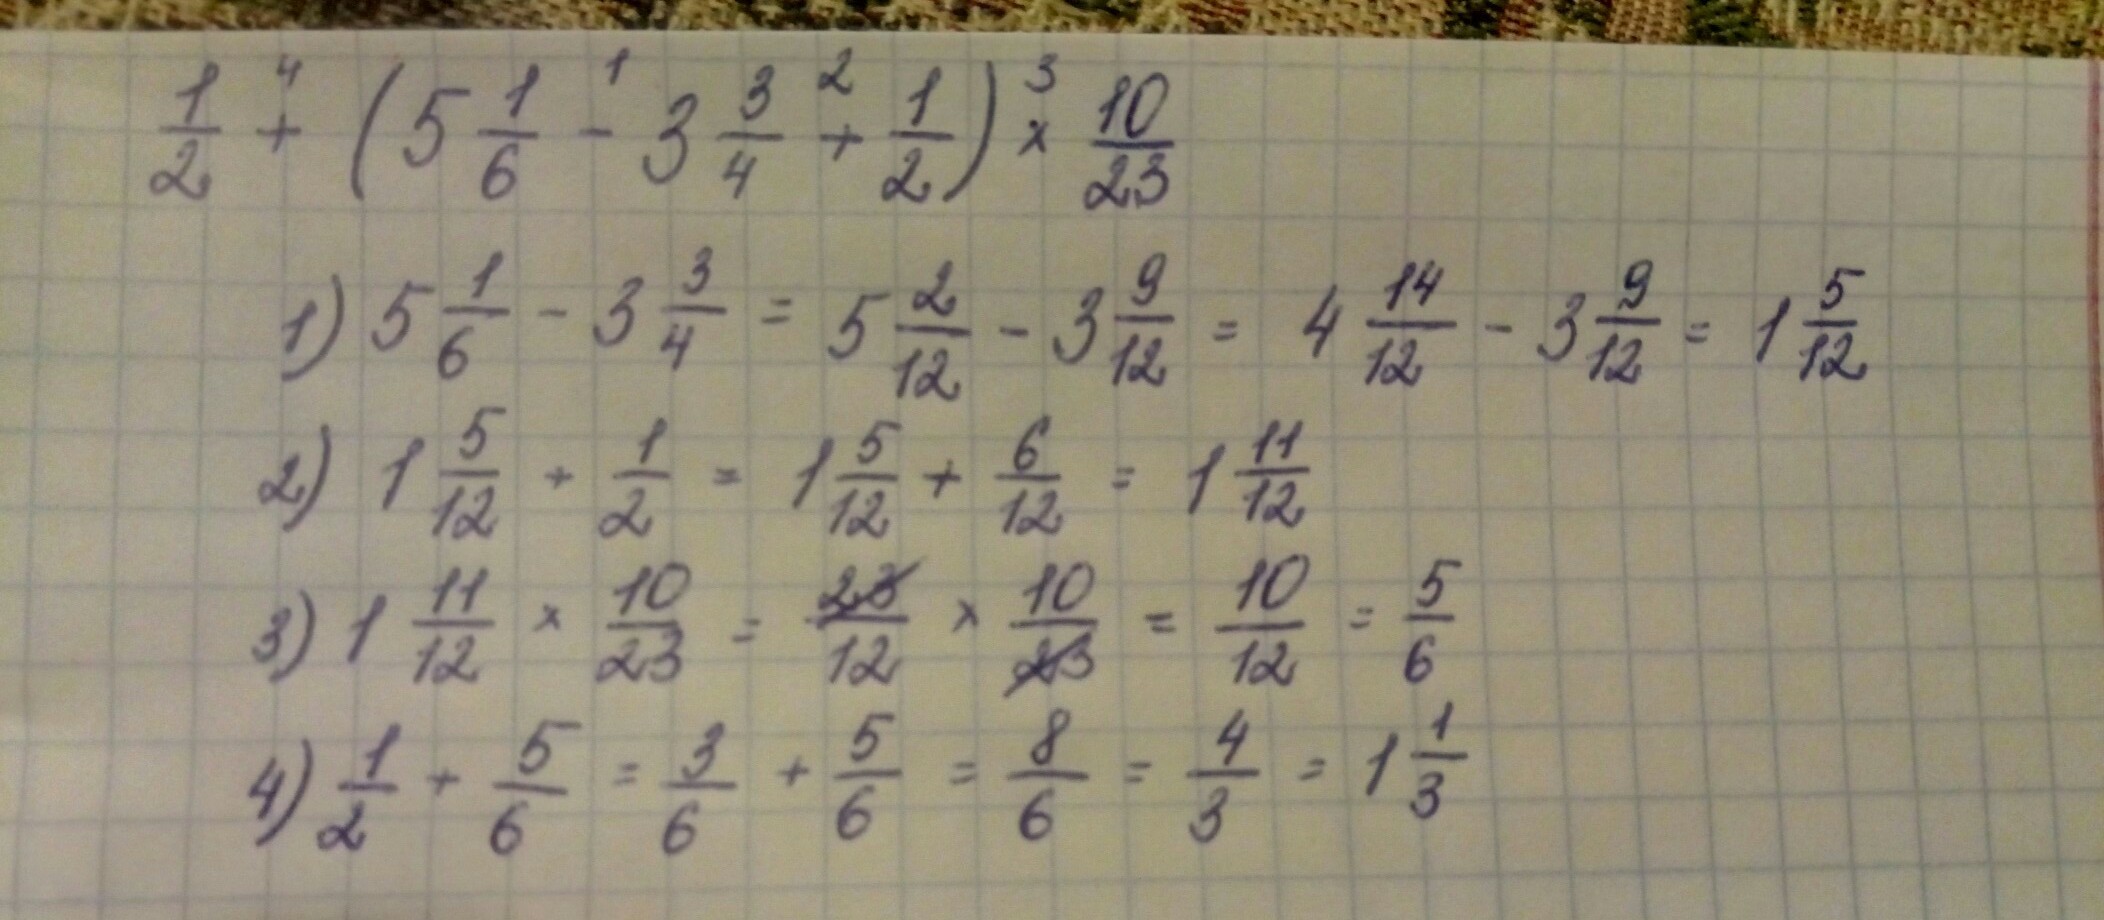 1/2 + (5 1/6 - 3 3/4 + 1/2) × 10/23
1) 5 1/6 - 3 3/4 = 5 2/12 - 3 9/12 = 4 14/12 - 3 9/12 = 1 5/12
2) 1 5/12 + 1/2 = 1 5/12 + 6/12 = 1 11/12
3) 1 11/12 × 10/23 = 23/12 × 10/23 = 10/12 = 5/6
4) 1/2 + 5/6 = 3/6 + 5/6 = 8/6 = 4/3 = 1 1/3